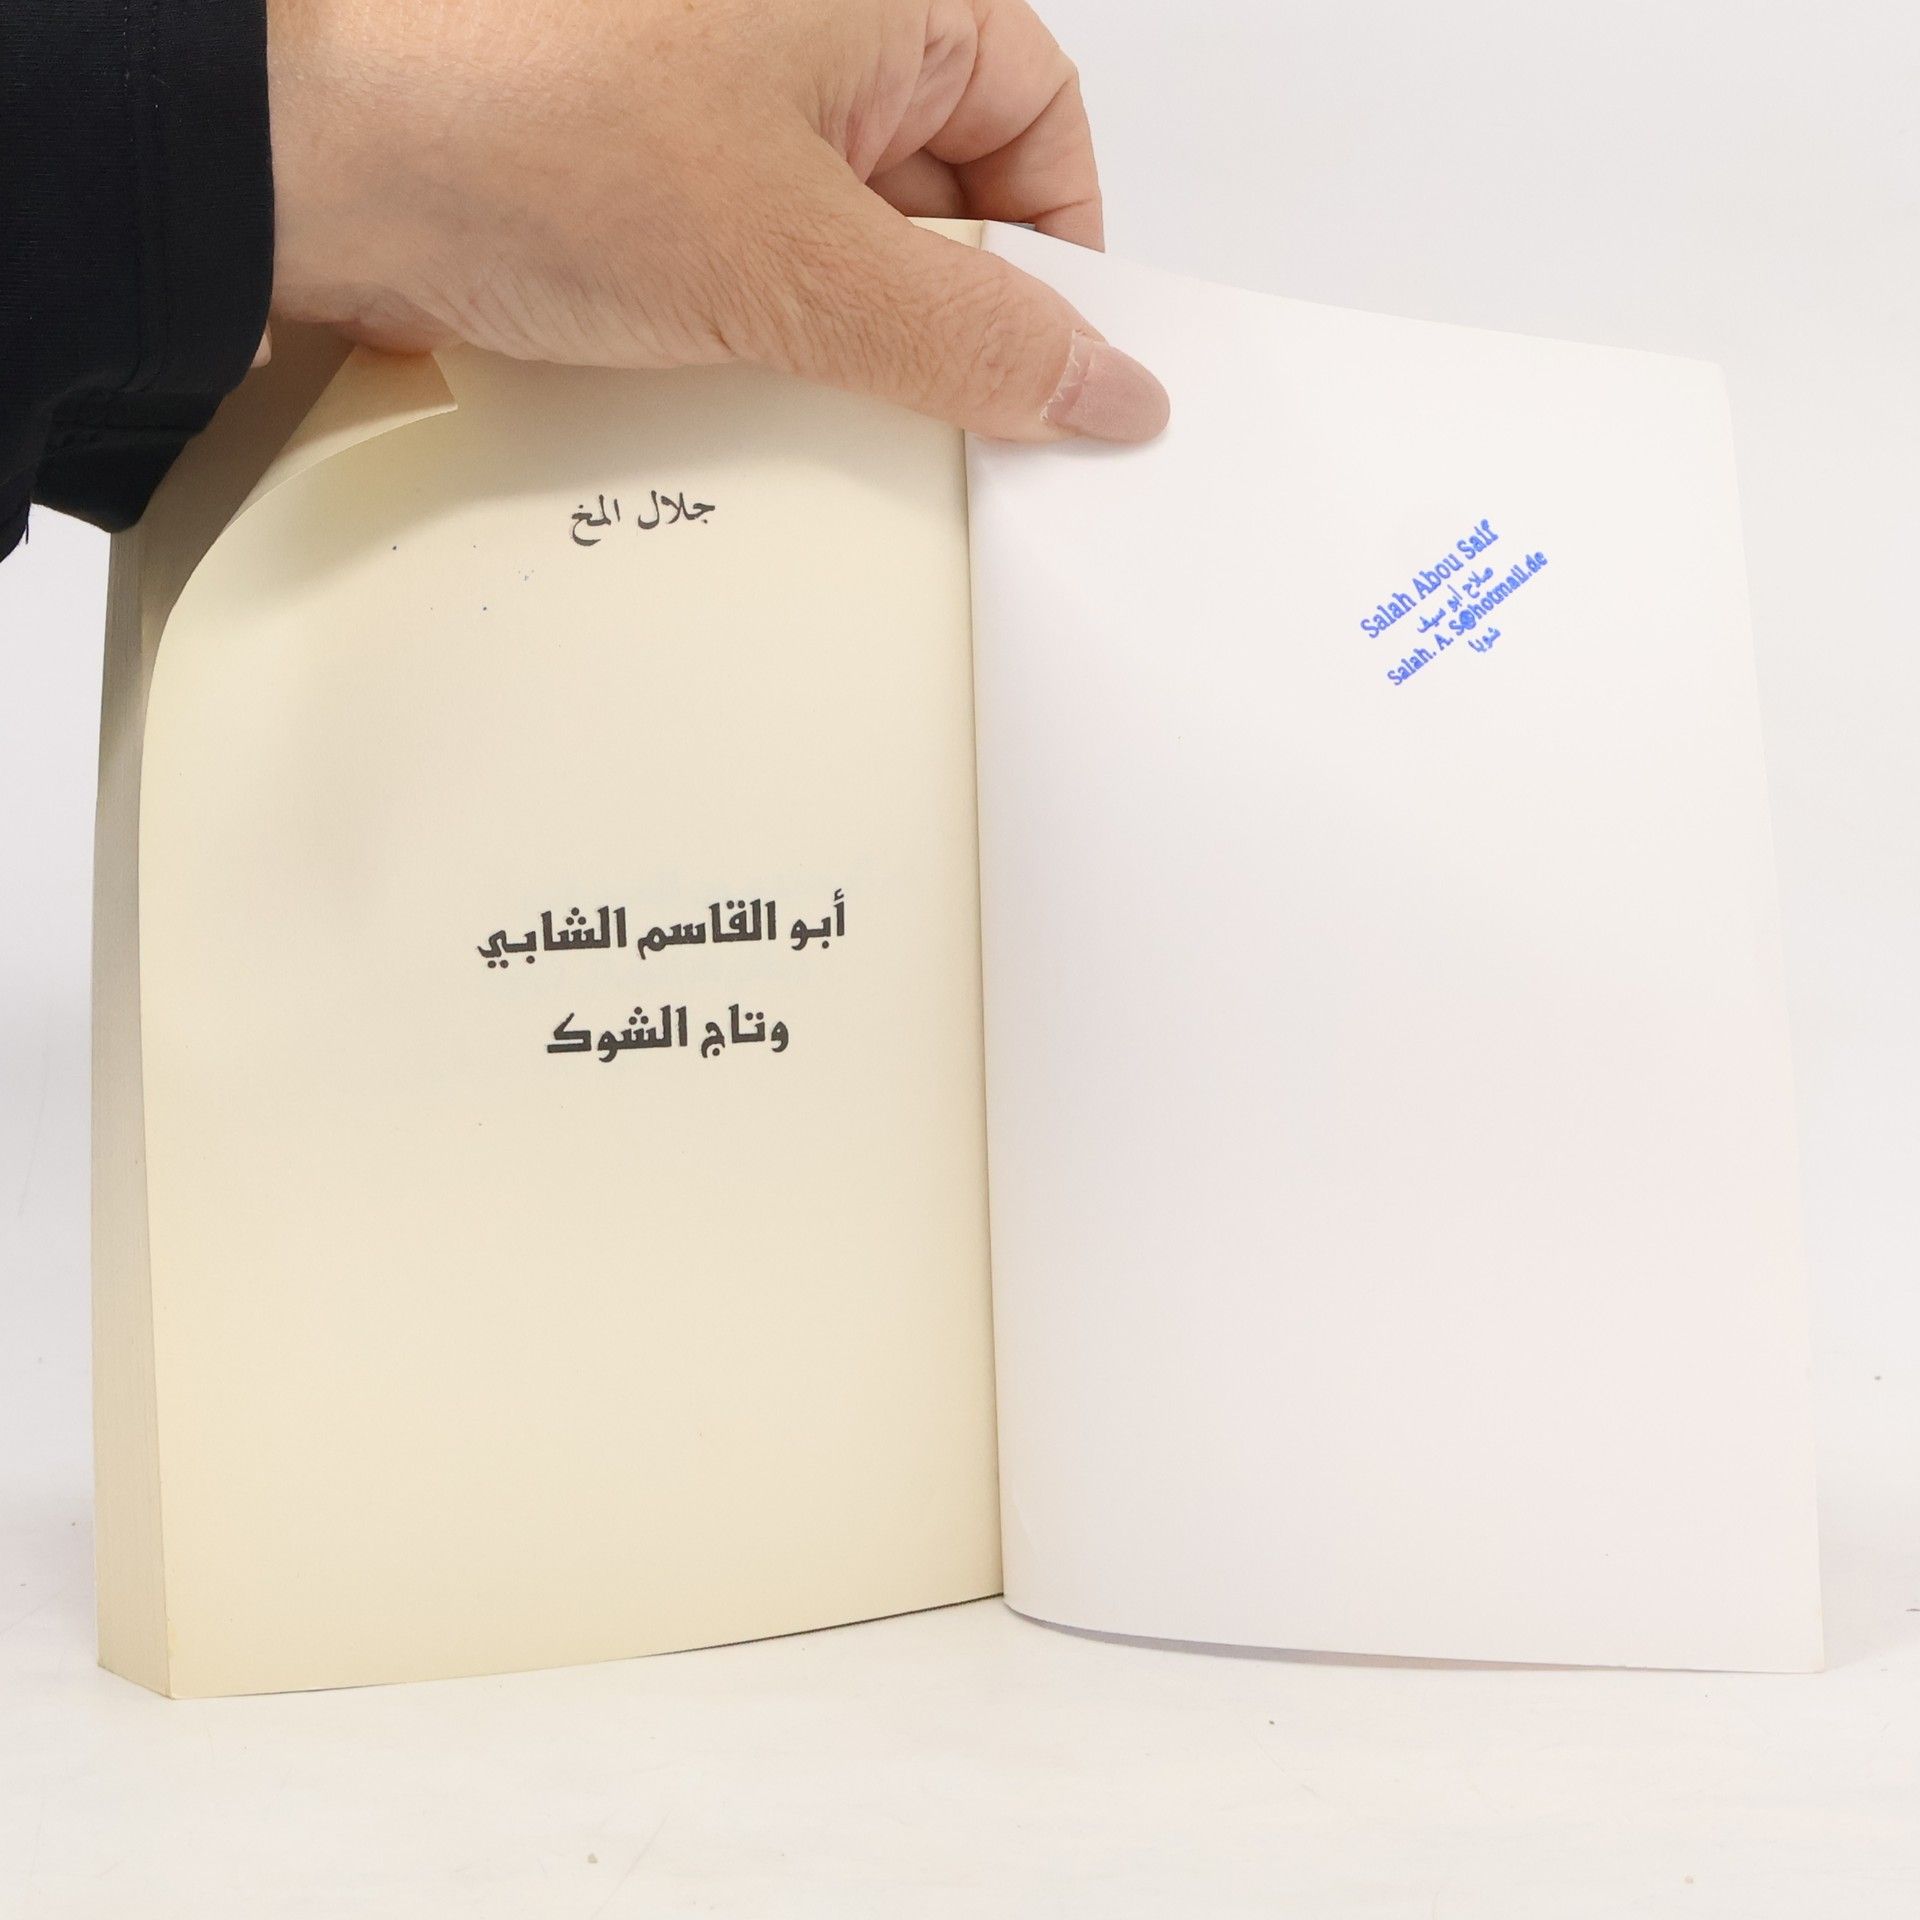 جلال المخ
أبو القاسم الشابي
وتاج الشوك
Salah Abou Saif
صلاح أبو سيف
Salah. A. S@hotmail.de